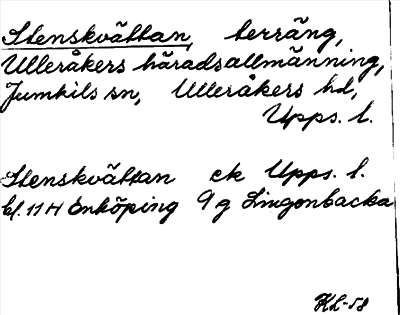 Stenskvättan, terräng,
Ulleråkers häradsallmänning,
Jumkils sn, Ulleråkers hd,
Upps. l.
Stenskvättan ek Upps. l.
bl. 11 H Enköping 9 g Lingonbacka
KL-58